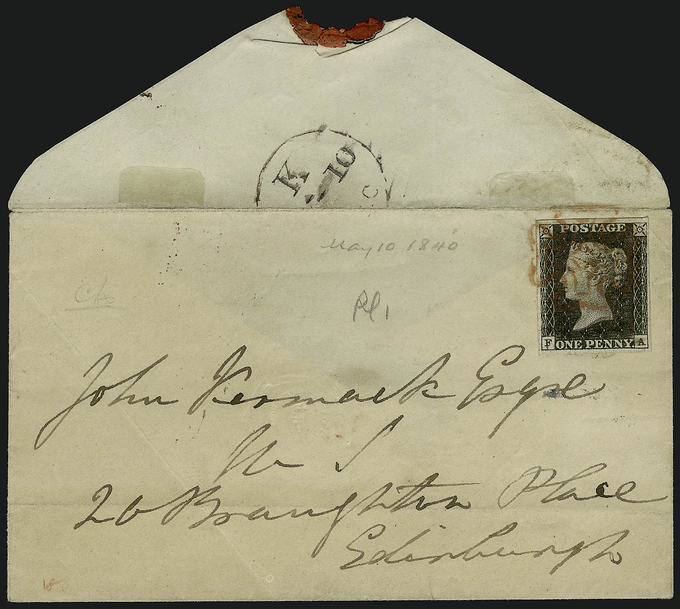 K
10
May 10 1840
Pl 1
POSTAGE
F ONE PENNY A
John Kermack Esqre
W S
20 Broughton Place
Edinburgh